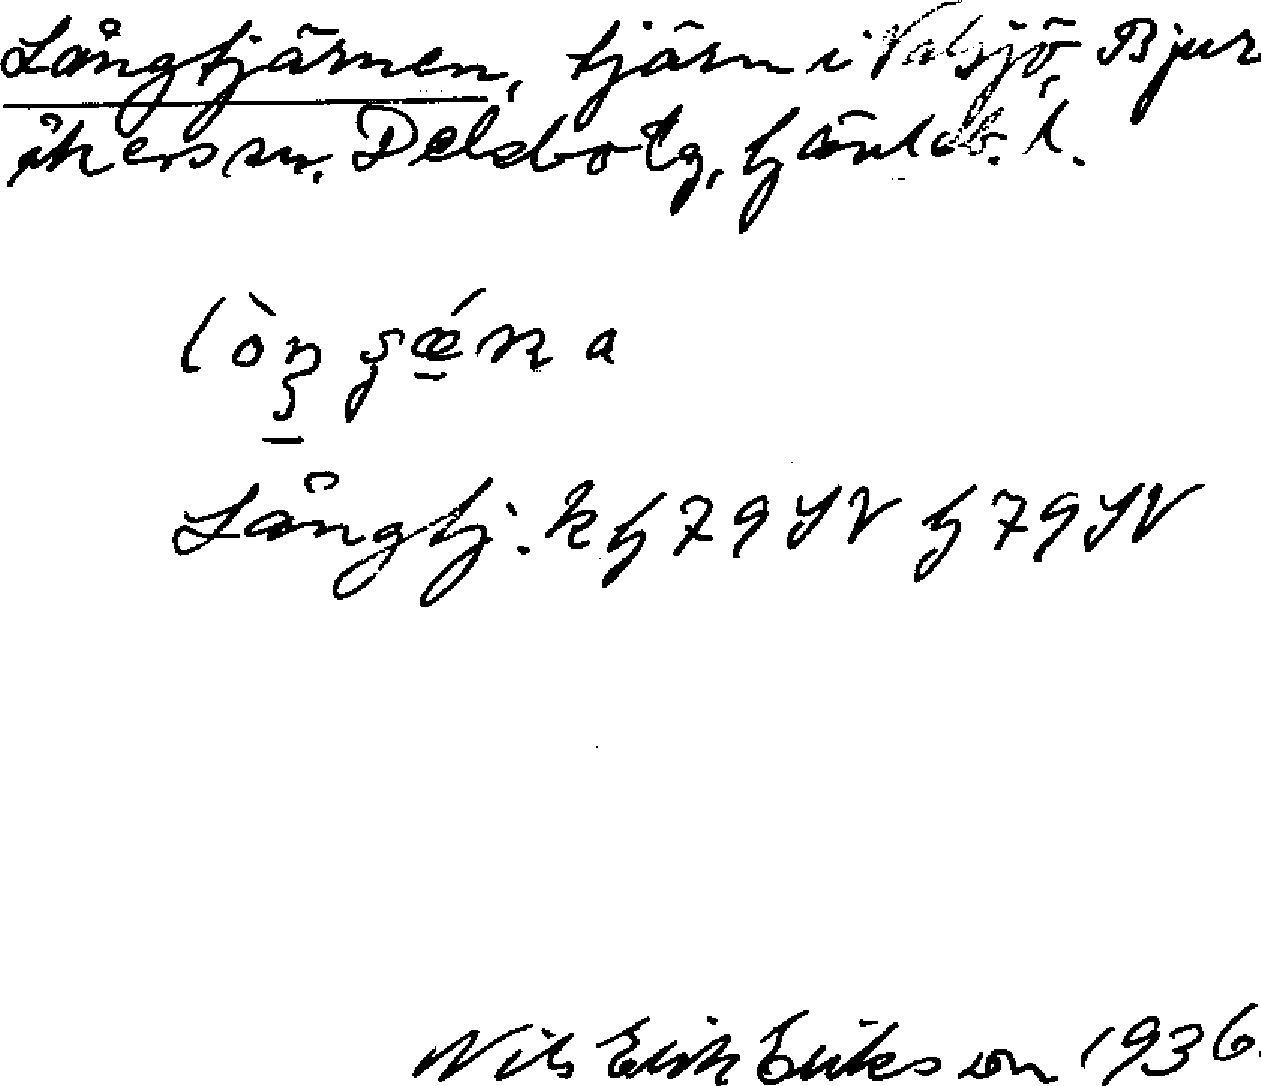 Långtjärnen, tjärn i Valsjö, Bjur
åkers sn, Delsbo tg, Gävleb. l.
Långtj. k h 79 SV h 79 SV
Nils Erik Eriksson 1936.